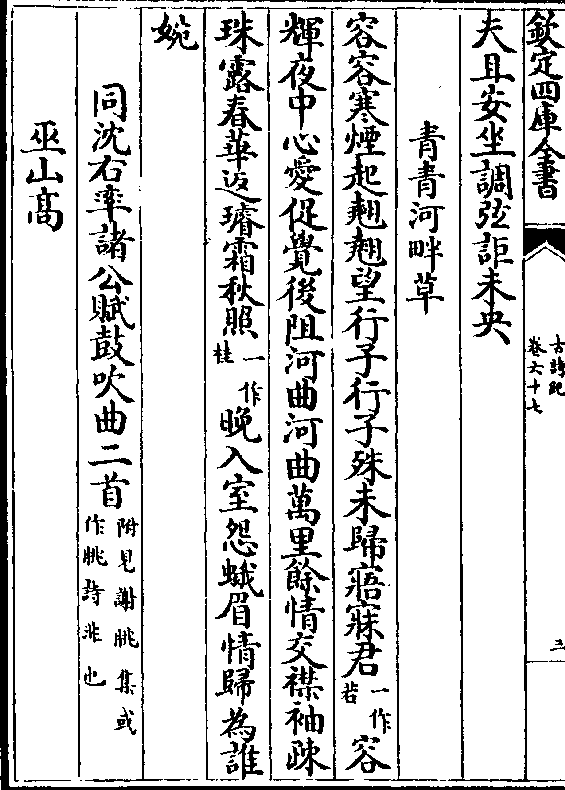 欽定四庫全書
古詩紀
卷六十七
三
夫且安坐調弦詎未央
青青河畔草
容容寒煙起翹翹望行子行子殊未歸寤寐君一作若容
輝夜中心愛促覺後阻河曲河曲萬里餘情交襟袖疎
珠露春華返璿霜秋照一作桂晚入室怨蛾眉情歸為誰
婉
同沈右率諸公賦鼓吹曲二首附見謝朓集或作朓詩非也
巫山高